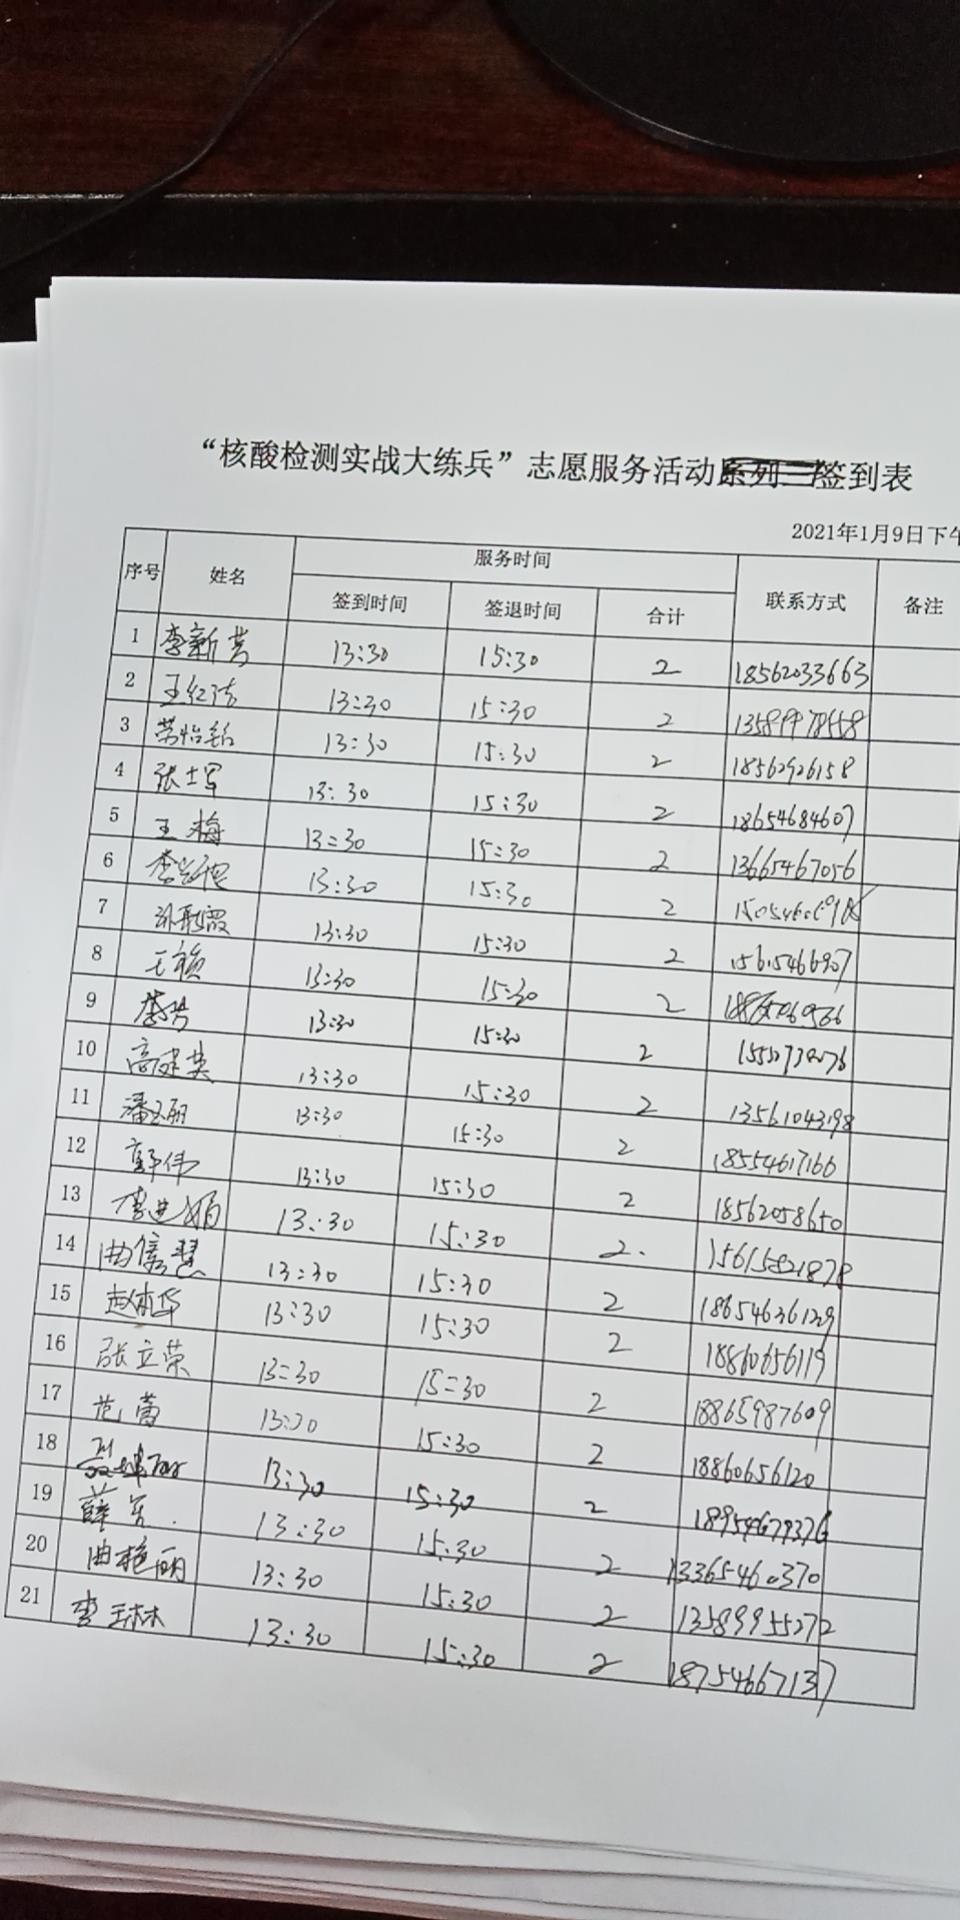 “核酸检测实战大练兵”志愿服务活动系列三签到表
2021年1月9日下午
序号 姓名 服务时间 联系方式 备注
签到时间 签退时间 合计
1 李新芳 13:30 15:30 2 18562033663
2 王红洁 13:30 15:30 2
3 13:30 15:30 2 18562926158
4 张士军 13:30 15:30 2 18654684607
5 王梅 13:30 15:30 2 13665467056
6 13:30 15:30 2
7 13:30 15:30 2 15615466907
8 王颖 13:30 15:30 2
9 李芳 13:30 15:30 2
10 高建英 13:30 15:30 2 13561043198
11 潘玉丽 13:30 15:30 2 18554617166
12 13:30 15:30 2 18562058650
13 李建娟 13:30 15:30 2. 15615821878
14 曲俊慧 13:30 15:30 2 18654636129
15 13:30 15:30 2 18860656119
16 张立荣 13:30 15:30 2 18865987609
17 范蕾 13:30 15:30 2 18860656120
18 13:30 15:30 2 18954679376
19 13:30 15:30 2 13365460370
20 曲艳丽 13:30 15:30 2 13589955272
21 李玉林 13:30 15:30 2 18754667137